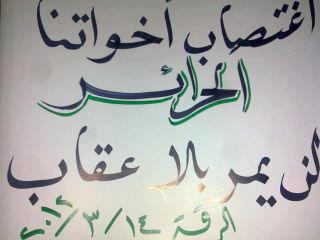 اغتصاب أخواتنا
الحرائر
لن يمر بلا عقاب
الرقة ١٤/٣/٢٠١٢